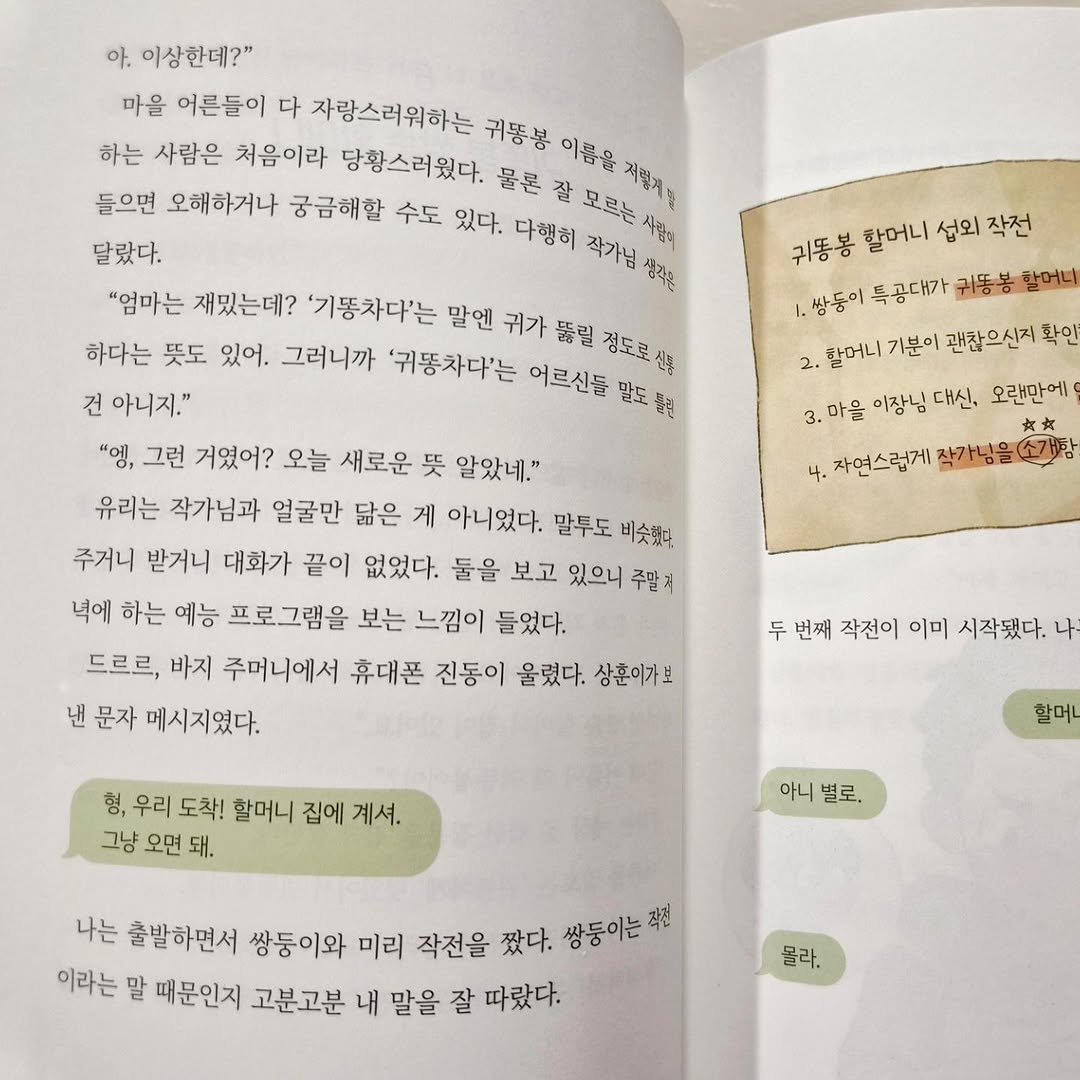 아. 이상한데?”
마을 어른들이 다 자랑스러워하는 귀똥봉 이름을 저렇게 말
하는 사람은 처음이라 당황스러웠다. 물론 잘 모르는 사람이
들으면 오해하거나 궁금해할 수도 있다. 다행히 작가님 생각은
달랐다.
“엄마는 재밌는데? ‘기똥차다’는 말엔 귀가 뚫릴 정도로 신통
하다는 뜻도 있어. 그러니까 ‘귀똥차다’는 어르신들 말도 틀린
건 아니지.”
“엥, 그런 거였어? 오늘 새로운 뜻 알았네.”
유리는 작가님과 얼굴만 닮은 게 아니었다. 말투도 비슷했다.
주거니 받거니 대화가 끝이 없었다. 둘을 보고 있으니 주말 저
녁에 하는 예능 프로그램을 보는 느낌이 들었다.
드르르, 바지 주머니에서 휴대폰 진동이 울렸다. 상훈이가 보
낸 문자 메시지였다.
형, 우리 도착! 할머니 집에 계셔.
그냥 오면 돼.
나는 출발하면서 쌍둥이와 미리 작전을 짰다. 쌍둥이는 작전
이라는 말 때문인지 고분고분 내 말을 잘 따랐다.
귀똥봉 할머니 섭외 작전
1. 쌍둥이 특공대가 귀똥봉 할머니
2. 할머니 기분이 괜찮으신지 확인
3. 마을 이장님 대신, 오랜만에
4. 자연스럽게 작가님을 소개함
두 번째 작전이 이미 시작됐다. 나
할머니
아니 별로.
몰라.